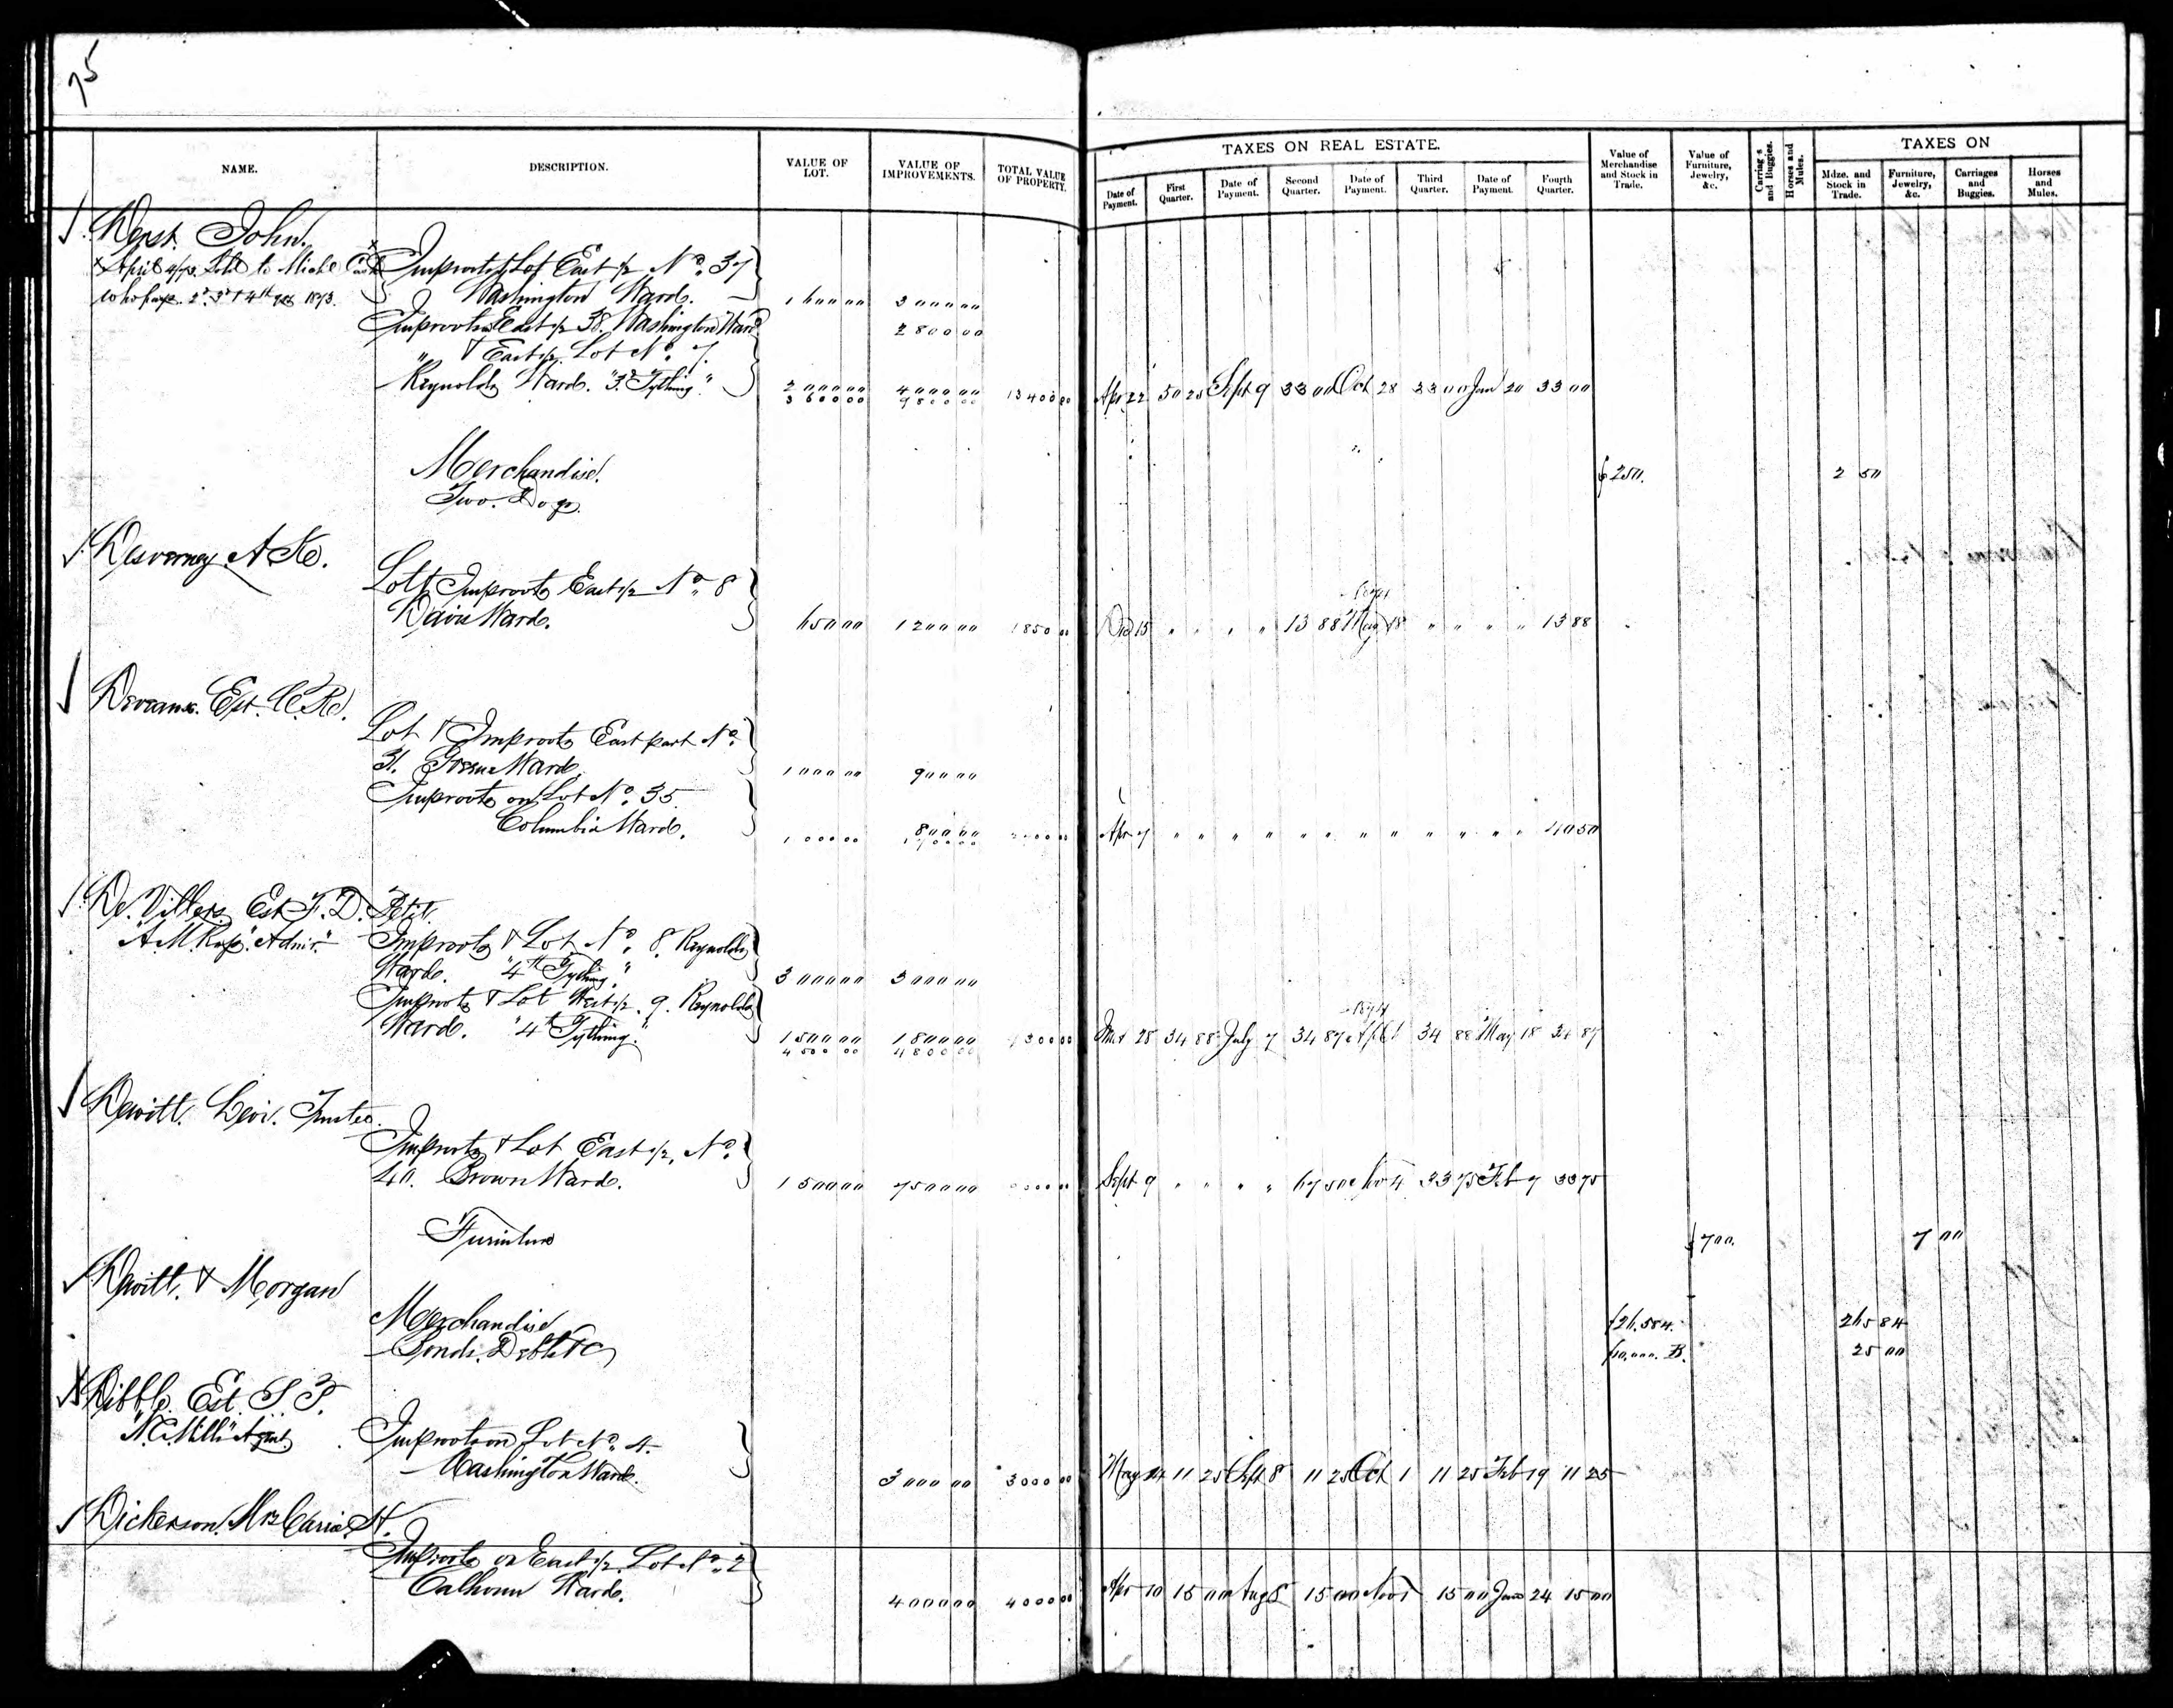 75
NAME. DESCRIPTION. VALUE OF LOT. VALUE OF IMPROVEMENTS. TOTAL VALUE OF PROPERTY. TAXES ON REAL ESTATE. Date of Payment. First Quarter. Date of Payment. Second Quarter. Date of Payment. Third Quarter. Date of Payment. Fourth Quarter. Value of Merchandise and Stock in Trade. Value of Furniture, Jewelry, &c. Carriag's and Buggies. Horses and Mules. TAXES ON Mdze. and Stock in Trade. Furniture, Jewelry, &c. Carriages and Buggies. Horses and Mules.
Derst. John.
x April 4/73. Sold to Michl Improvts & Lot East ½ No. 37
who pays 2d. 3d & 4th qrs 1873. Washington Ward. 1600 00 3000 00
Improvts East ½ 38. Washington Ward 2800 00
" & East ½ Lot No. 7.
Reynolds Ward. "3d Tything" 2000 00 4000 00
3600 00 9800 00 13400 00 Apr 22 50 25 Sept 9 33 00 Oct 28 33 00 Jan 20 33 00
Merchandise. $250. 2 50
Two Dogs.
Desverney A
Lot & Improvts East ½ No. 8
Ward. 650 00 1200 00 1850 00 15 " " " " 13 88 May 18 " " " " 13 88
Deveaux. Est.
Lot & Improvts East part No.
31. Greene Ward. 1000 00 900 00
Improvts on Lot No. 35
Columbia Ward. 800 00
1000 00 1700 00 2700 00 Apr 7 " " " " " " " " " " " " 40 50
De. Villers. Est F. D. Petit.
A. M. Ross. "Admr." Improvts & Lot No. 8. Reynolds
Ward. "4th Tything" 3000 00 3000 00
Improvts & Lot West ½ 9. Reynolds 1874
Ward. "4th Tything." 1500 00 1800 00
4500 00 4800 00 9300 00 Mar 28 34 88 July 7 34 87 Apl 34 88 May 18 34 87
Dewitt. Levi. Trustee.
Improvts & Lot East ½, No.
40. Brown Ward. 1500 00 7500 00 9000 00 Sept 9 " " " " 67 50 Nov 4 33 75 Feb 7 33 75
Furniture $700. 7 00
Dewitt. & Morgan
Merchandise $26.584. 265 84
Bonds. Debts &C $10.000. B. 25 00
Dibble. Est.
"Agent" Improvts on Lot No. 4.
Washington Ward. 3000 00 3000 00 May 11 25 Sept 8 11 25 Oct 1 11 25 Feb 19 11 25
Dickerson. Mrs H.
Improvts on East ½ Lot No. 2
Calhoun Ward. 4000 00 4000 00 Apr 10 15 00 Aug 8 15 00 Nov 1 15 00 24 15 00